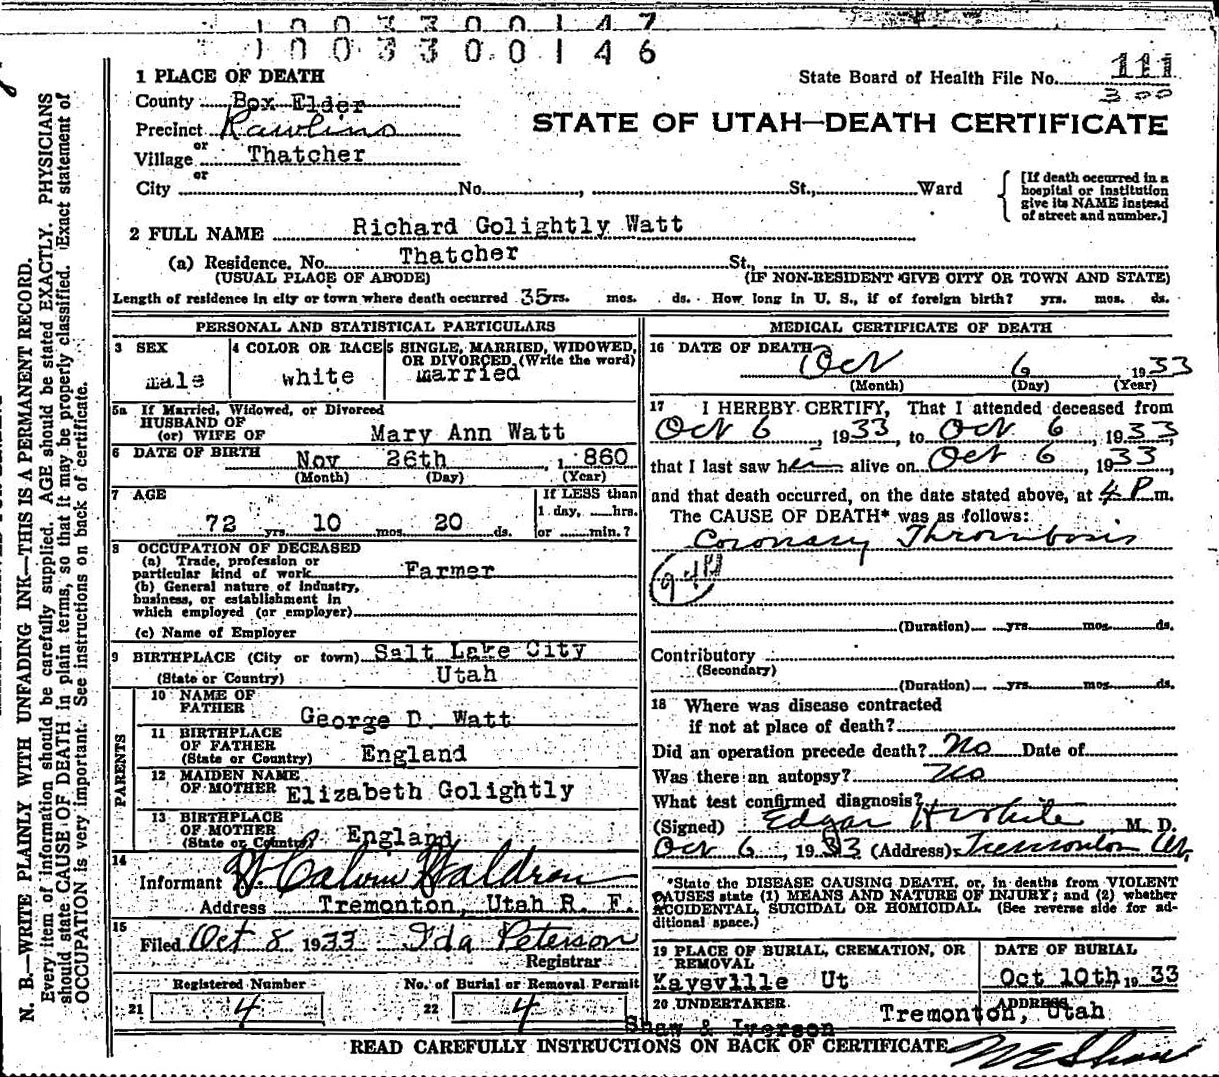 1003300147
1003300146
1 PLACE OF DEATH
State Board of Health File No. 111
300
County Box Elder
Precinct Rawlins
or
STATE OF UTAH—DEATH CERTIFICATE
Village Thatcher
or
City No. , St., Ward
[If death occurred in a hospital or institution give its NAME instead of street and number.]
2 FULL NAME Richard Golightly Watt
(a) Residence. No. Thatcher St.,
(USUAL PLACE OF ABODE) (IF NON-RESIDENT GIVE CITY OR TOWN AND STATE)
Length of residence in city or town where death occurred 35 yrs. mos. ds. How long in U. S., if of foreign birth? yrs. mos. ds.
PERSONAL AND STATISTICAL PARTICULARS
3 SEX
male
4 COLOR OR RACE
white
5 SINGLE, MARRIED, WIDOWED,
OR DIVORCED (Write the word)
married
5a If Married, Widowed, or Divorced
HUSBAND OF
(or) WIFE OF Mary Ann Watt
6 DATE OF BIRTH Nov 26th , 1 860
(Month) (Day) (Year)
7 AGE
72 yrs. 10 mos. 20 ds.
If LESS than
1 day, hrs.
or min.?
8 OCCUPATION OF DECEASED
(a) Trade, profession or
particular kind of work Farmer
(b) General nature of industry,
business, or establishment in
which employed (or employer)
(c) Name of Employer
9 BIRTHPLACE (City or town) Salt Lake City
(State or Country) Utah
PARENTS
10 NAME OF
FATHER George D. Watt
11 BIRTHPLACE
OF FATHER
(State or Country) England
12 MAIDEN NAME
OF MOTHER Elizabeth Golightly
13 BIRTHPLACE
OF MOTHER
(State or Country) England
14
Informant Calvin Waldren
Address Tremonton, Utah R. F.
15
Filed Oct 8 1933 Ida Peterson
Registrar
Registered Number
21 4
No. of Burial or Removal Permit
22 4
MEDICAL CERTIFICATE OF DEATH
16 DATE OF DEATH
Oct 6 1933
(Month) (Day) (Year)
17 I HEREBY CERTIFY, That I attended deceased from
Oct 6 , 1933, to Oct 6 , 1933,
that I last saw him alive on Oct 6 , 1933,
and that death occurred, on the date stated above, at 4 P. m.
The CAUSE OF DEATH* was as follows:
Coronary Thrombosis
(Duration) yrs. mos. ds.
Contributory
(Secondary)
(Duration) yrs. mos. ds.
18 Where was disease contracted
if not at place of death?
Did an operation precede death? No Date of
Was there an autopsy? No
What test confirmed diagnosis?
(Signed) Edgar H White , M. D.
Oct 6 , 1933 (Address) Tremonton Ut.
*State the DISEASE CAUSING DEATH, or, in deaths from VIOLENT
CAUSES state (1) MEANS AND NATURE OF INJURY; and (2) whether
ACCIDENTAL, SUICIDAL OR HOMICIDAL. (See reverse side for ad-
ditional space.)
19 PLACE OF BURIAL, CREMATION, OR
REMOVAL
Kaysville Ut
DATE OF BURIAL
Oct 10th, 1933
20 UNDERTAKER
Shaw & Iverson
ADDRESS
Tremonton, Utah
READ CAREFULLY INSTRUCTIONS ON BACK OF CERTIFICATE
N. B.—WRITE PLAINLY WITH UNFADING INK—THIS IS A PERMANENT RECORD.
Every item of information should be carefully supplied. AGE should be stated EXACTLY. PHYSICIANS
should state CAUSE OF DEATH in plain terms, so that it may be properly classified. Exact statement of
OCCUPATION is very important. See instructions on back of certificate.